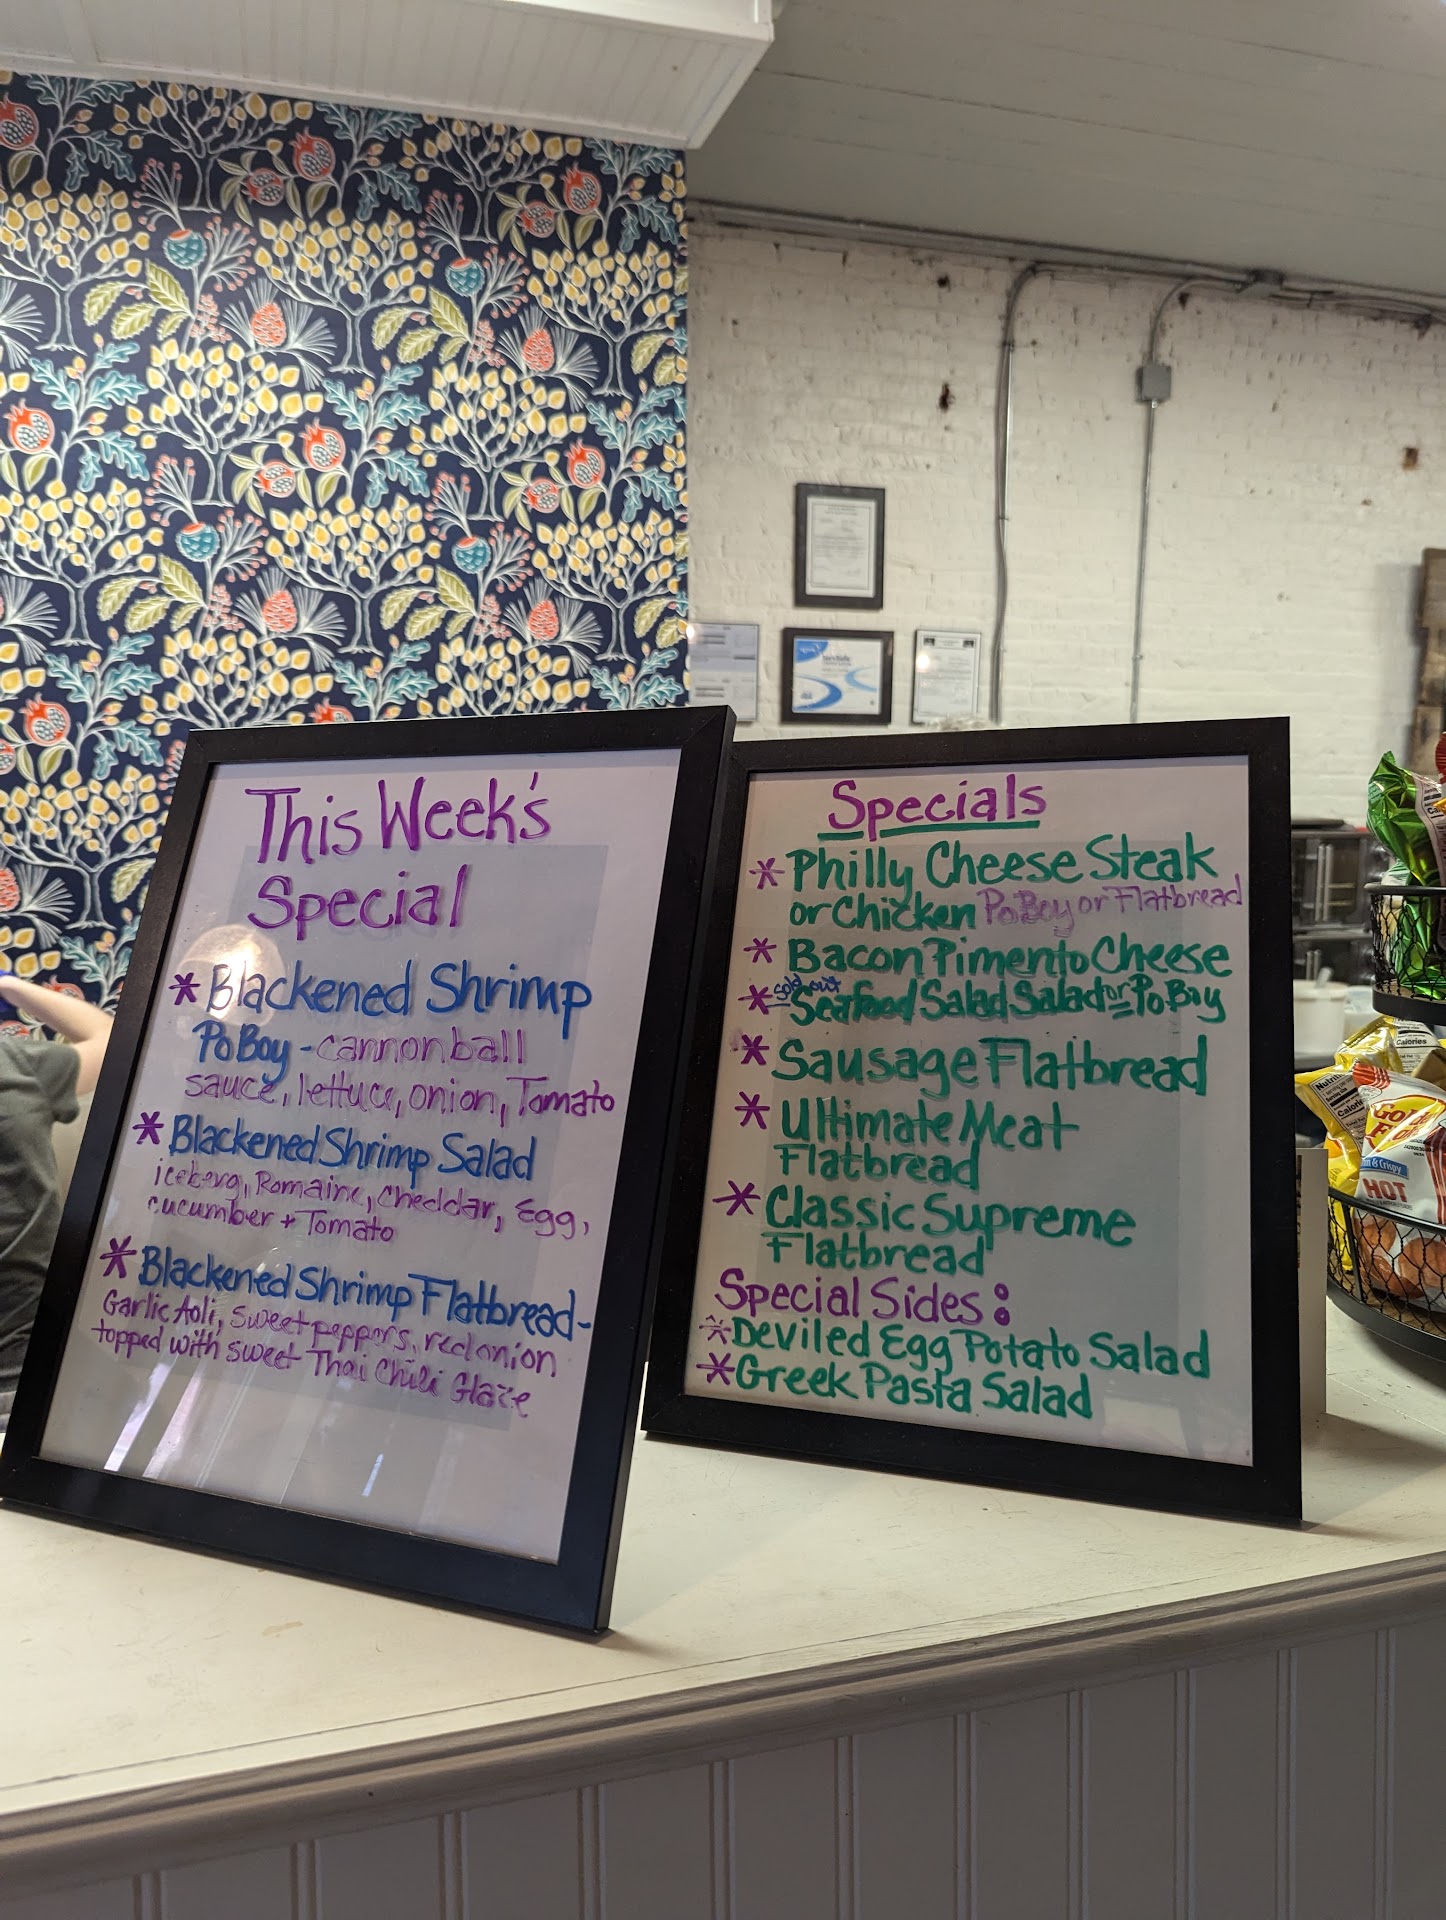 This Week's
Special
* Blackened Shrimp
PoBoy - cannonball
sauce, lettuce, onion, Tomato
* Blackened Shrimp Salad
iceberg, Romaine, cheddar, Egg,
cucumber + Tomato
* Blackened Shrimp Flatbread-
Garlic Aoli, sweet peppers, red onion
topped with sweet Thai Chili Glaze
Specials
* Philly Cheese Steak
or Chicken PoBoy or Flatbread
* Bacon Pimento Cheese
sold out
* Seafood Salad Salad or PoBoy
* Sausage Flatbread
* Ultimate Meat
Flatbread
* Classic Supreme
Flatbread
Special Sides:
* Deviled Egg Potato Salad
* Greek Pasta Salad
ServSafe
Calories
Calories
Gold
& Crispy
HOT